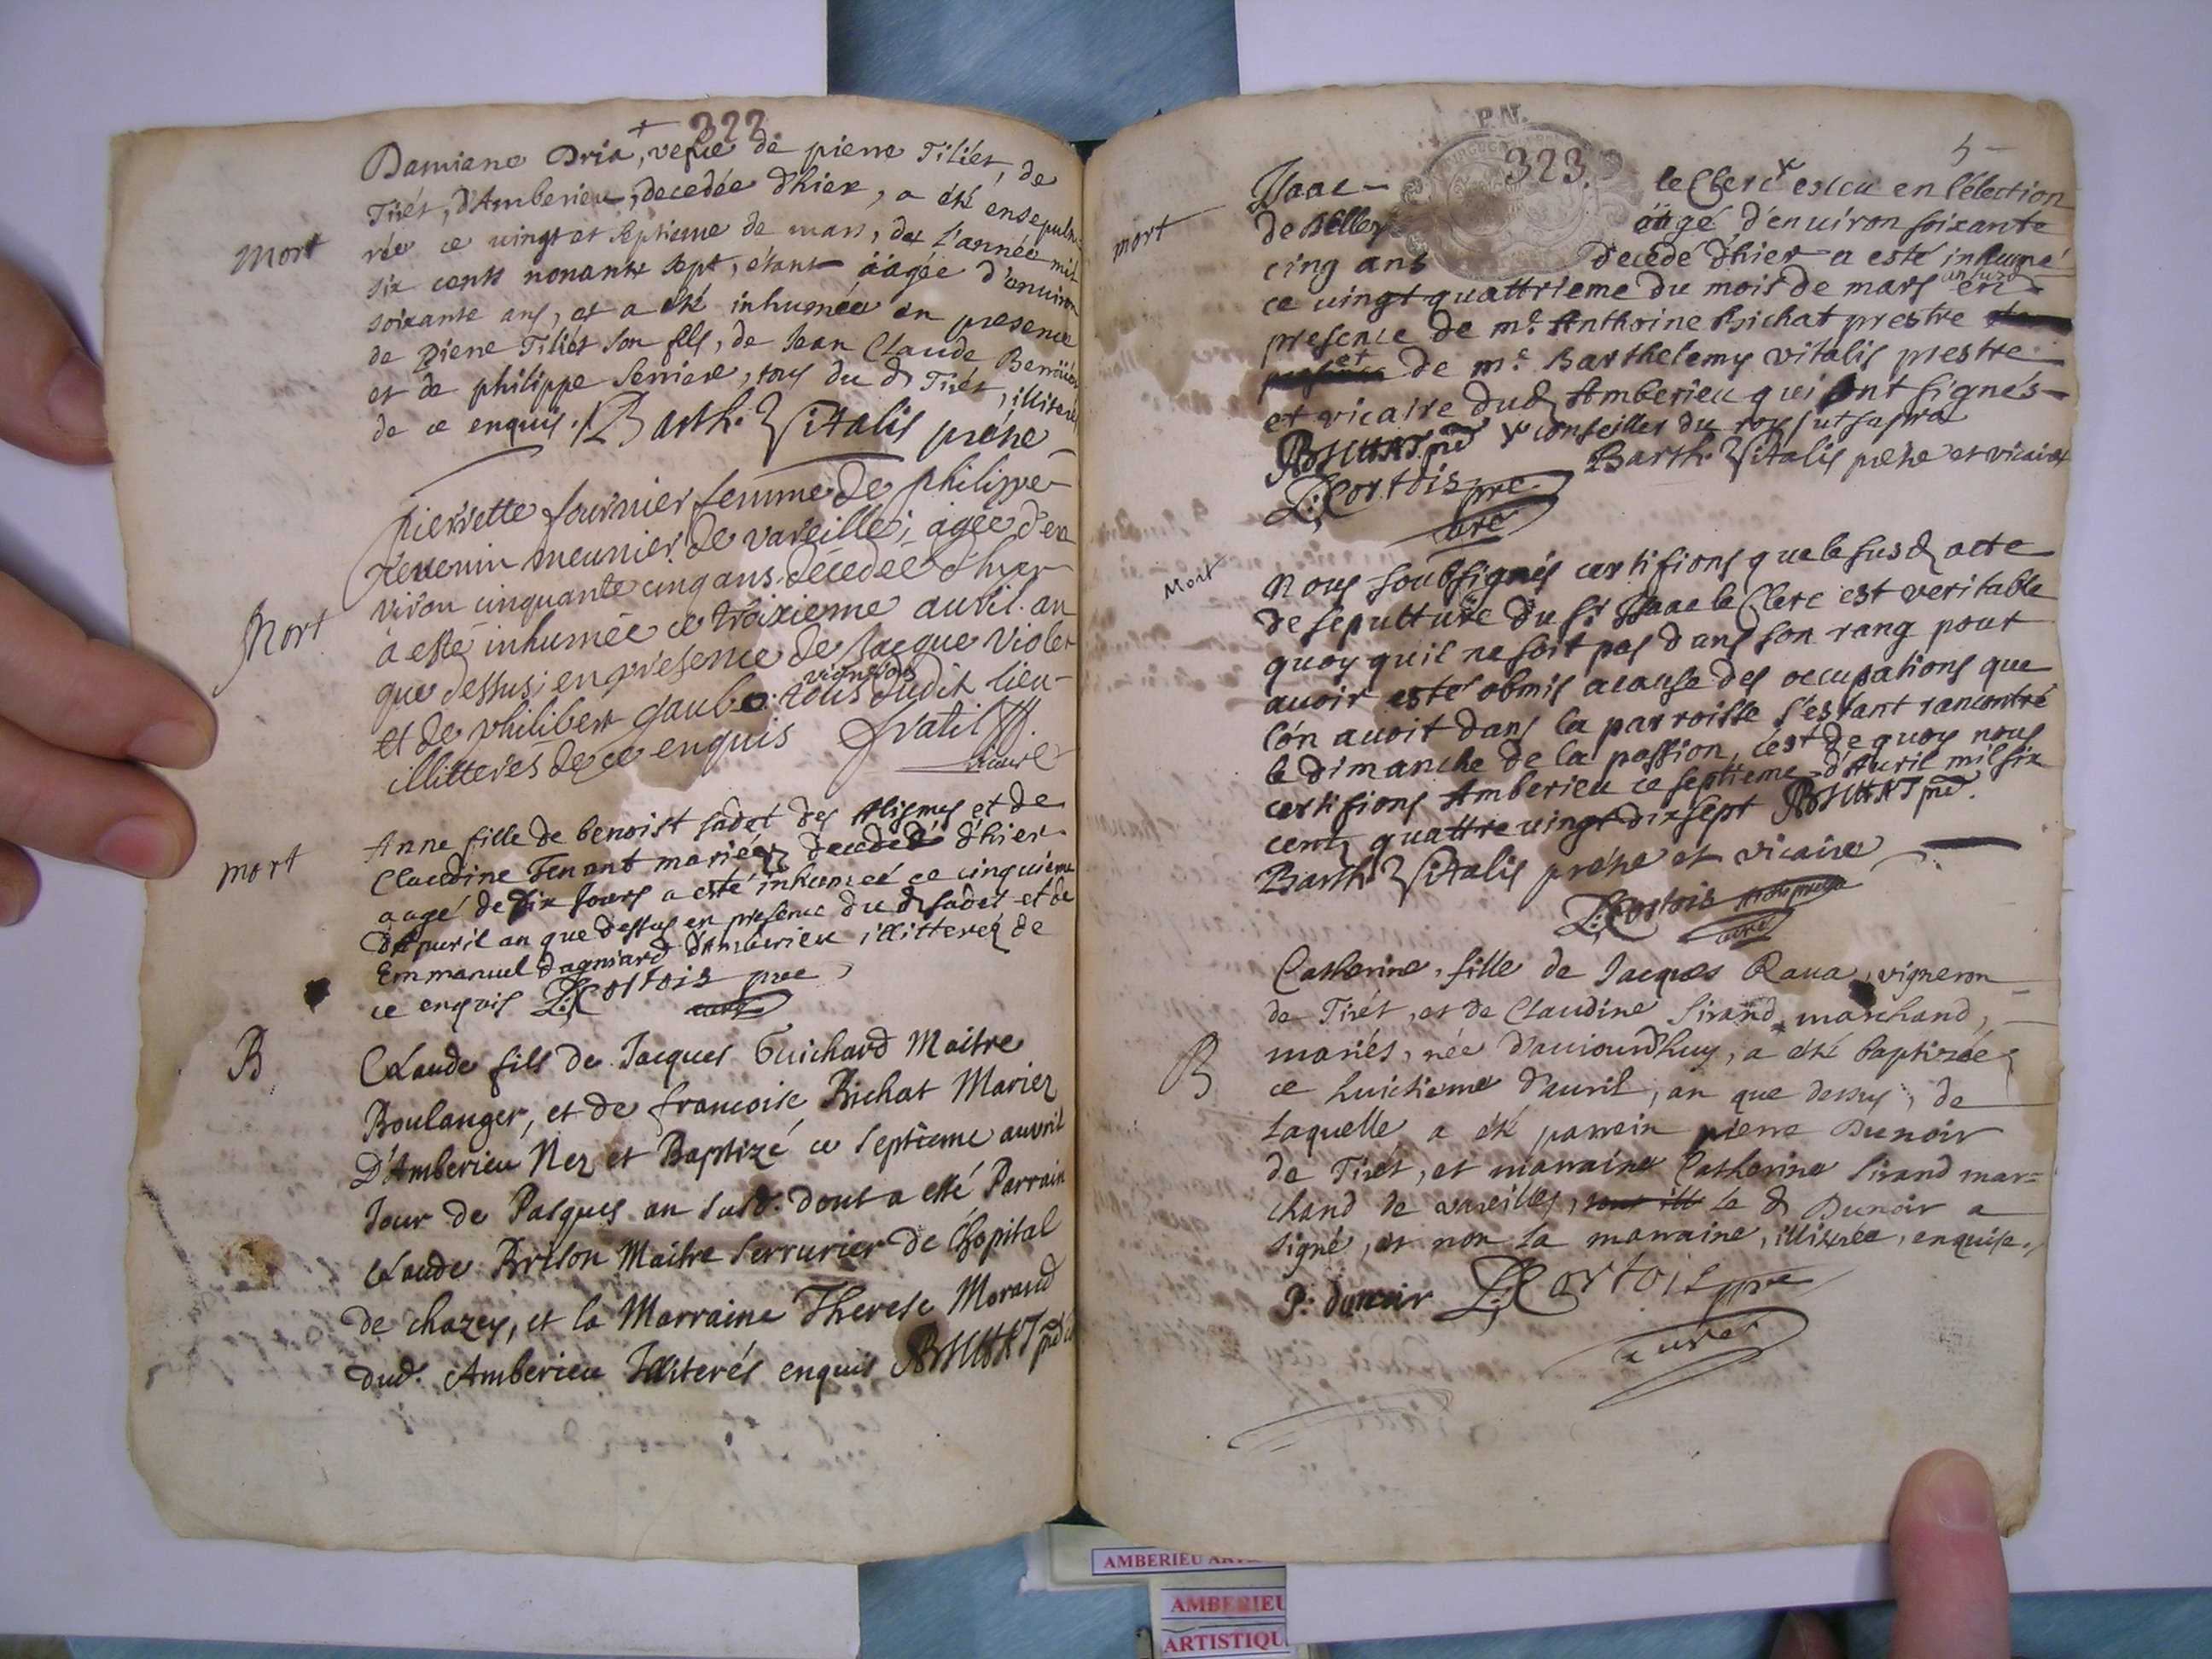 322
Damiane Dria, vefve de pierre Tiliét, de
Tirét, d'Amberieu, decedée d'hier, a été ensepultu-
rée ce vingt et septieme de mars, de l'année mil
mort
six cents nonante sept, étant aagée d'environ
soixante ans, et a été inhumée en presence
de pierre Tiliét son fils, de Jean Claude
et de philippe Serriere, tous du d Tirét, illiterés
de ce enquis. / Barth. Vitalis prêtre
pierrette fournier femme de philippe
meunier de vareille; agée d'en
viron cinquante cinq ans, decedée d'hyer
Mort
a esté inhumée ce troixieme auvril. an
que dessus; en presence de Jacque Violet
vignerons
et de philibert gaube tous dudit lieu
illitterés de ce enquis
vicaire
Anne fille de benoist sadet des Alismes et de
Claudine Tenant mariéz decedeé d'hier
mort
aagé de dix Jours a esté inhumeé ce cinquieme
d'apuril an que dessus en presence du d sadet et de
Emmanuel dagniard d'Amberieu illitteréz de
ce enquis L: Cortois pre
curé
B
Claude fils de Jacques Guichard Maitre
Boulanger, et de francoise Bichat Mariez
D'Amberieu Nez et Baptizé ce septieme auvril
Jour de Pasques an susd. dont a esté Parrain
Claude Brison Maitre Serrurier de Lhopital
de chazey, et la Marraine Therese Morand
dud. Amberieu Illiterés enquis ABICHAT
P.N.
323
5
Isaac le Clerc x esleu en l'élection
de Belley aagé d'environ soixante
mort
cinq ans decedé d'hier a esté inhumé
ce vingt quattrieme du mois de mars an susd en
presence de me. Anthoine Bichat prestre
et de me. Barthelemy vitalis prestre
et vicaire dud Amberieu qui ont signés
ABICHAT x conseiller du roy ut supra
Barth. Vitalis prêtre et vicaire
L: Cortois pre
curé
Mort
Nous soubsignés certifions que le susd acte
de sepulture du sr. Isaac le Clerc est veritable
quoy quil ne soit pas dans son rang pour
avoir esté obmis acause des occupations que
l'on avoit dans la parroisse s'estant rancontré
le dimanche de la passion, c'est de quoy nous
certifions Amberieu ce septieme d'Avril mil six
cents quattre vingt dix sept ABICHAT
Barth. Vitalis prêtre et vicaire
L: Cortois
curé
Catherine, fille de Jacques Rava, vigneron
de Tirét, et de Claudine Sirand marchand,
B
mariés, née d'aujourd'huy, a été baptizée
ce huictieme d'avril, an que dessus, de
laquelle a été parrein pierre Dunoir
de Tirét, et marraine Catherine Sirand mar=
chand de vareilles, le d Dunoir a
signé, et non la marraine, illitérée, enquise.
P: dunoir L: Cortois pre
curé
AMBERIEU
AMBERIEU
ARTISTIQU